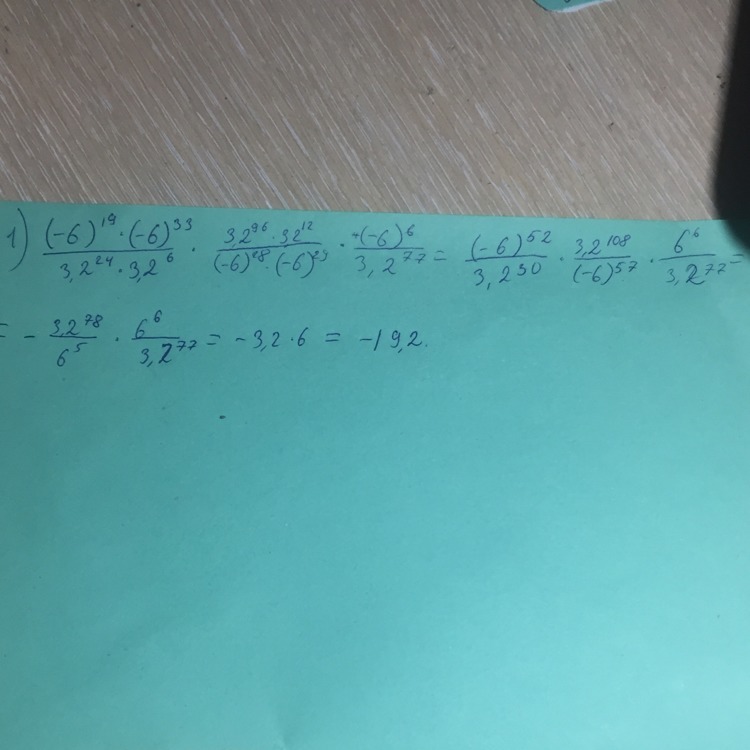 1) \frac{(-6)^{19} \cdot (-6)^{33}}{3,2^{24} \cdot 3,2^{6}} \cdot \frac{3,2^{96} \cdot 3,2^{12}}{(-6)^{28} \cdot (-6)^{29}} \cdot \frac{(-6)^{6}}{3,2^{77}} = \frac{(-6)^{52}}{3,2^{30}} \cdot \frac{3,2^{108}}{(-6)^{57}} \cdot \frac{6^{6}}{3,2^{77}} =
= - \frac{3,2^{78}}{6^{5}} \cdot \frac{6^{6}}{3,2^{77}} = -3,2 \cdot 6 = -19,2.